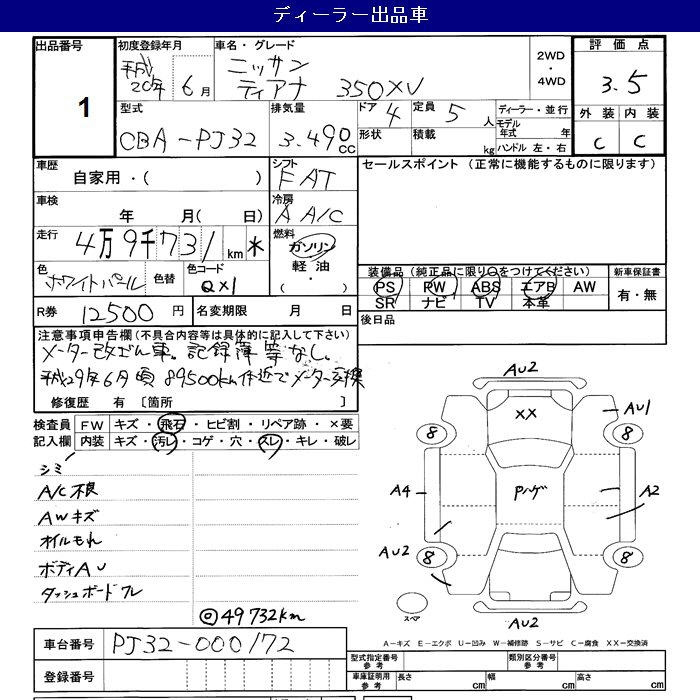 ディーラー出品車
出品番号 1
初度登録年月 平成20年 6月
車名・グレード ニッサン ティアナ 350XV
2WD・4WD
評価点 3.5
外装 C 内装 C
型式 CBA-PJ32
排気量 3.490cc
ドア 4
形状
定員 5人
積載 kg
ディーラー・並行
モデル年式 年
ハンドル 左・右
車歴 自家用・( )
シフト FAT
セールスポイント (正常に機能するものに限ります)
車検 年 月( 日)
冷房 A A/C
走行 4万9千731km *
燃料 ガソリン 軽油・( )
色 ホワイトパール
色替
色コード QX1
装備品 (純正品に限り○をつけてください)
PS PW ABS エアB AW
SR ナビ TV 本革
新車保証書 有・無
R券 12500円
名変期限 月 日
後日品
注意事項申告欄(不具合内容等は具体的に記入して下さい)
メーター改ざん車。記録簿等なし。
平成29年6月頃 89500km付近でメーター交換
修復歴 有 [箇所 ]
検査員記入欄
FW キズ・飛石・ヒビ割・リペア跡・×要
内装 キズ・汚レ・コゲ・穴・スレ・キレ・破レ
シミ
A/C不良
AWキズ
オイルもれ
ボディAU
ダッシュボードワレ
◎49732km
AU2
XX
AU1
8 8
Pハゲ
A4
A2
AU2
8 8
スペア
AU2
A-キズ E-エクボ U-凹み W-補修跡 S-サビ C-腐食 XX-交換済
車台番号 PJ32-000172
登録番号
型式指定番号 参考
類別区分番号 参考
車庫証明用 参考 長さ cm 幅 cm 高さ cm